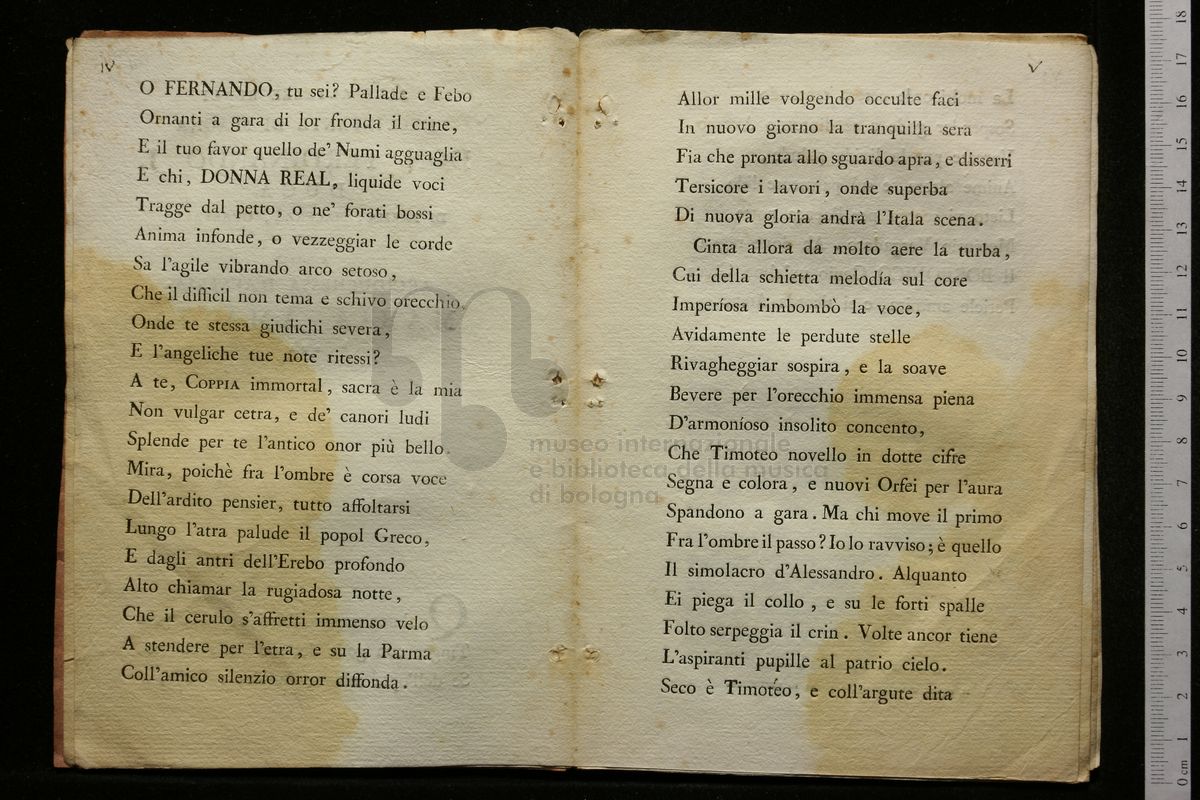 IV
O FERNANDO, tu sei? Pallade e Febo
Ornanti a gara di lor fronda il crine,
E il tuo favor quello de' Numi agguaglia
E chi, DONNA REAL, liquide voci
Tragge dal petto, o ne' forati bossi
Anima infonde, o vezzeggiar le corde
Sa l'agile vibrando arco setoso,
Che il difficil non tema e schivo orecchio,
Onde te stessa giudichi severa,
E l'angeliche tue note ritessi?
A te, COPPIA immortal, sacra è la mia
Non vulgar cetra, e de' canori ludi
Splende per te l'antico onor più bello.
Mira, poichè fra l'ombre è corsa voce
Dell'ardito pensier, tutto affoltarsi
Lungo l'atra palude il popol Greco,
E dagli antri dell'Erebo profondo
Alto chiamar la rugiadosa notte,
Che il cerulo s'affretti immenso velo
A stendere per l'etra, e su la Parma
Coll'amico silenzio orror diffonda.
V
Allor mille volgendo occulte faci
In nuovo giorno la tranquilla sera
Fia che pronta allo sguardo apra, e disserri
Tersicore i lavori, onde superba
Di nuova gloria andrà l'Itala scena.
Cinta allora da molto aere la turba,
Cui della schietta melodía sul core
Imperíosa rimbombò la voce,
Avidamente le perdute stelle
Rivagheggiar sospira, e la soave
Bevere per l'orecchio immensa piena
D'armoníoso insolito concento,
Che Timoteo novello in dotte cifre
Segna e colora, e nuovi Orfei per l'aura
Spandono a gara. Ma chi move il primo
Fra l'ombre il passo? Io lo ravviso; è quello
Il simolacro d'Alessandro. Alquanto
Ei piega il collo, e su le forti spalle
Folto serpeggia il crin. Volte ancor tiene
L'aspiranti pupille al patrio cielo.
Seco è Timotéo, e coll'argute dita
museo internazionale
e biblioteca della musica
di bologna
0 cm 1 2 3 4 5 6 7 8 9 10 11 12 13 14 15 16 17 18